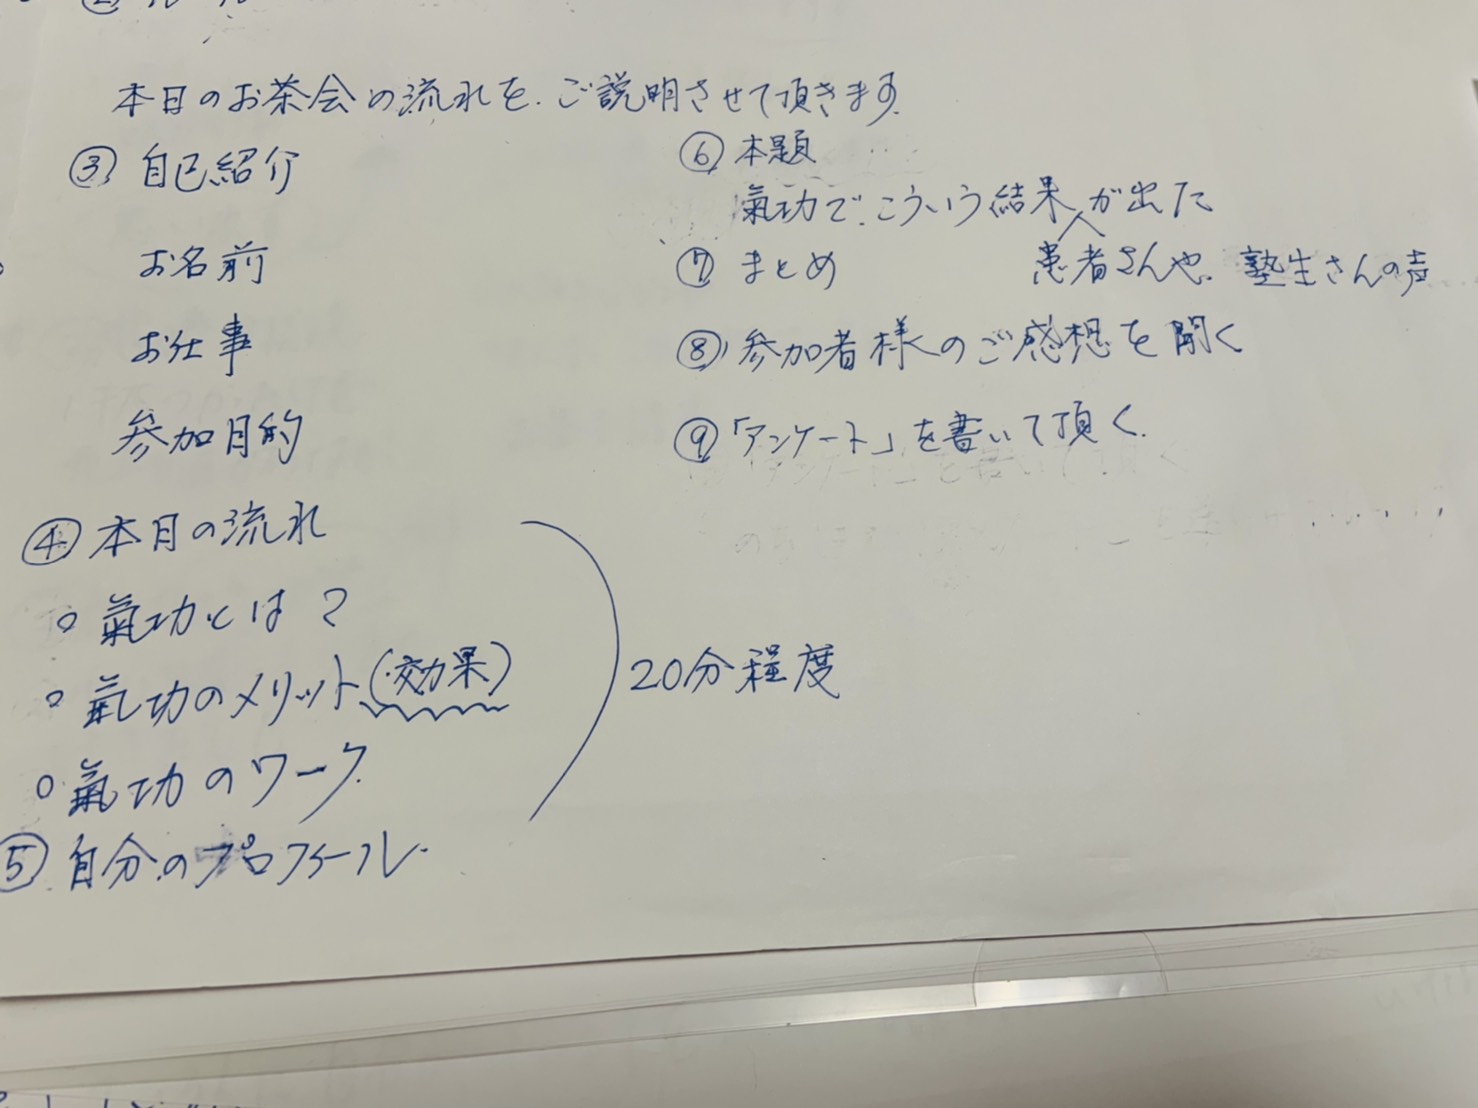 本日のお茶会の流れを、ご説明させて頂きます。
③ 自己紹介
お名前
お仕事
参加目的
④ 本日の流れ
○ 氣功とは?
○ 氣功のメリット(効果)
○ 氣功のワーク
20分程度
⑤ 自分のプロフィール
⑥ 本題
氣功で、こういう結果が出た
患者さんや、塾生さんの声
⑦ まとめ
⑧ 参加者様のご感想を聞く
⑨「アンケート」を書いて頂く